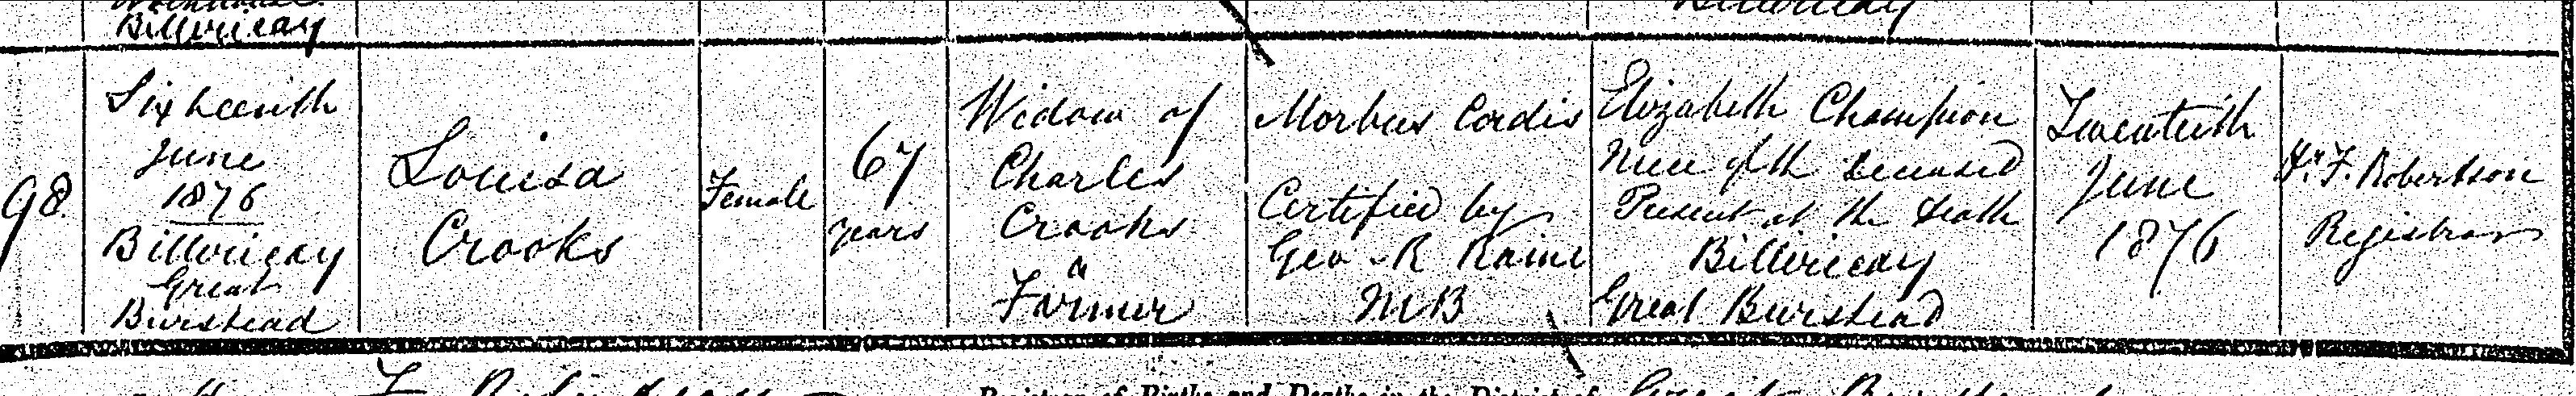 Billericay
Billericay
98.
Sixteenth
June
1876
Billericay
Great
Burstead
Louisa
Crooks
Female
67
years
Widow of
Charles
Crooks
a
Farmer
Morbus Cordis
Certified by
Geo R Raine
MB
Elizabeth Champion
Niece of the deceased
Present at the death
Billericay
Great Burstead
Twentieth
June
1876
F. Robertson
Registrar
Registrar of Births and Deaths in the District of